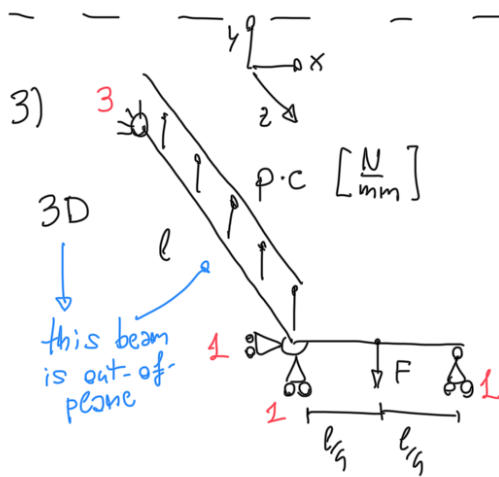 y
x
z
3)
3
p·c [N/mm]
3D
l
this beam
is out-of-
plane
1
F
1
1
l/4
l/4